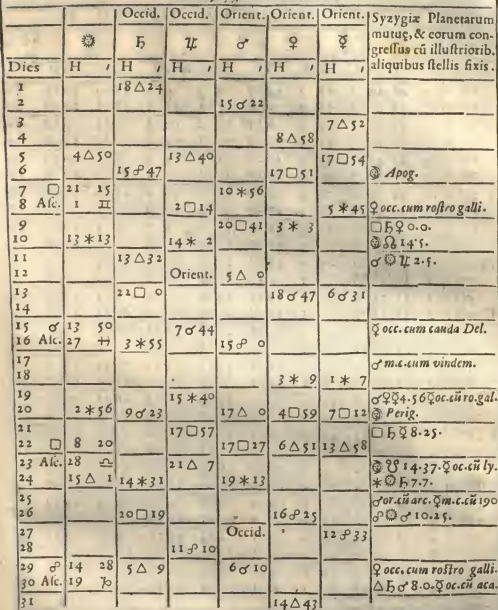 Occid. Occid. Orient. Orient. Orient. Syzygiæ Planetarum
mutuę, & eorum con-
☼ ♄ ♃ ♂ ♀ ☿ greſſus cũ illuſtriorib.
Dies H ′ H ′ H ′ H ′ H ′ H ′ aliquibus ſtellis fixis.
1 18 △ 24
2 15 ☌ 22
3 7 △ 52
4 8 △ 58
5 4 △ 50 13 △ 40 17 □ 54
6 15 ☍ 47 17 □ 51 Apog.
7 □ 21 15 10 ⚹ 56
8 Aſc. 1 ♊ 2 □ 14 5 ⚹ 45 ♀ occ. cum roſtro galli.
9 20 □ 41 3 ⚹ 3 □ ♄ ♀ 0.0.
10 13 ⚹ 13 14 ⚹ 2 ☊ 14.5.
11 13 △ 32 ☌ ☼ ♃ 2.5.
12 Orient. 5 △ 0
13 22 □ 0 18 ☌ 47 6 ☌ 31
14
15 ☌ 13 50 7 ☌ 44 ☿ occ. cum cauda Del.
16 Aſc. 27 ♓ 3 ⚹ 55 15 ☍ 0
17 ♂ m.c.cum vindem.
18 3 ⚹ 9 1 ⚹ 7
19 15 ⚹ 40 ☌ ♀ ☿ 4.56 ☿ oc.cũ ro.gal.
20 2 ⚹ 56 9 ☌ 23 17 △ 0 4 □ 59 7 □ 12 Perig.
21 17 □ 57 □ ♄ ☿ 8.25.
22 □ 8 20 17 □ 27 6 △ 51 13 △ 58
23 Aſc. 28 ♎ 21 △ 7 ☋ 14.37. ☿ oc.cũ ly.
24 15 △ 1 14 ⚹ 31 19 ⚹ 13 ⚹ ☼ ♄ 7.7.
25 ♂ or.cũ arc. ☿ m.c.cũ 190
26 20 □ 19 16 ☍ 25 ☍ ☼ ♂ 10.25.
27 Occid. 12 ☍ 33
28 11 ☍ 10
29 ☍ 14 28 5 △ 9 6 ☌ 10 ♀ occ. cum roſtro galli.
30 Aſc. 19 ♑ △ ♄ ♂ 8.0. ☿ oc.cũ aca.
31 14 △ 43